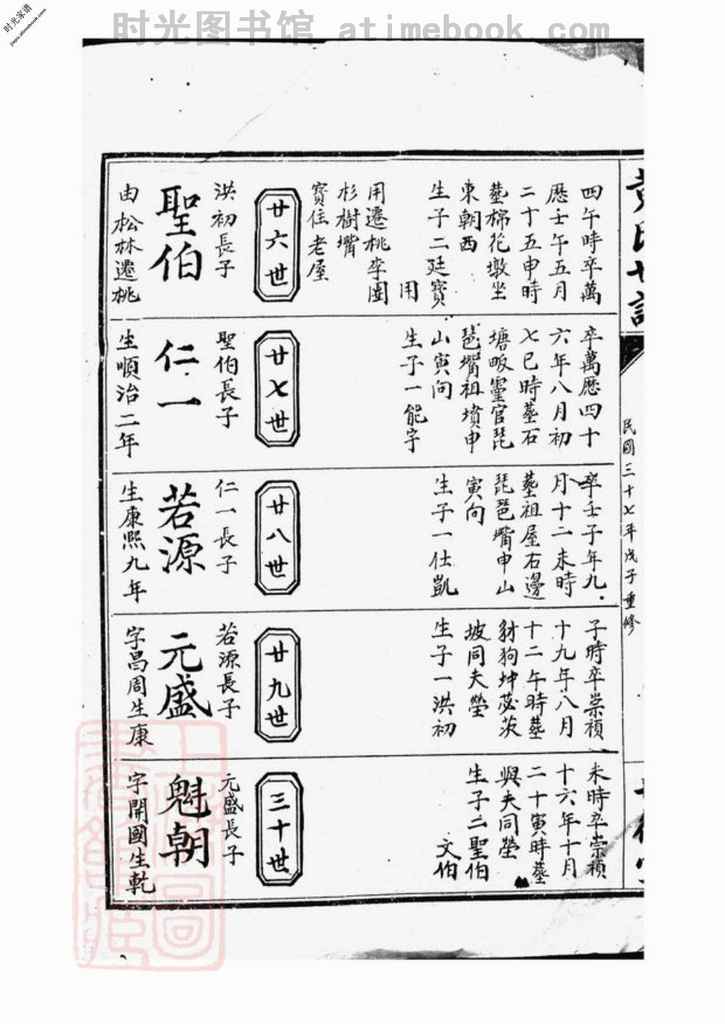 时光图书馆 atimebook.com
时光家谱
jiapu.atimebook.com
四午時卒萬
歷壬午五月
二十五申時
塟棉花墩坐
東朝西
生子二廷寳
用
用遷桃李園
杉樹嘴
寳住老屋
廿六世
洪初長子
聖伯
由松林遷桃
卒萬歷四十
六年八月初
七巳時塟石
塘畈靈官琵
琶嘴祖墳申
山寅向
生子一能字
廿七世
聖伯長子
仁一
生順治二年
卒壬子年九
月十二未時
塟祖屋右邊
琵琶嘴申山
寅向
生子一仕凱
廿八世
仁一長子
若源
生康熙九年
子時卒崇禎
十九年八月
十二午時塟
豺狗坤苾茨
坡同夫塋
生子一洪初
廿九世
若源長子
元盛
字昌周生康
未時卒崇禎
十六年十月
二十寅時塟
與夫同塋
生子二聖伯
文伯
三十世
元盛長子
魁朝
字開國生乾
民國三十七年戊子重修